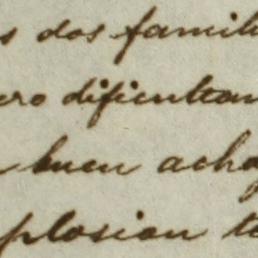 s dos famili
ero dificultan
buen acha
plosion t